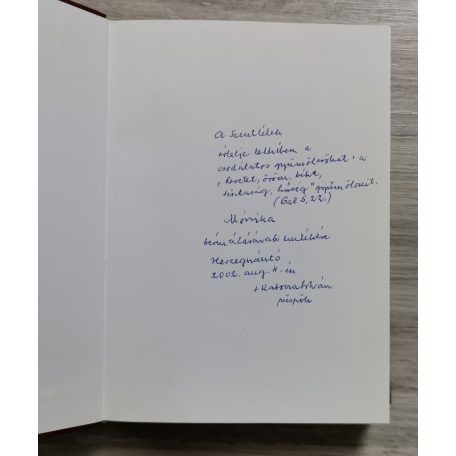 A Szentlélek
érlelje lelkében a
csodálatos gyümölcsöket: a
„szeretet, öröm, béke,
tisztaság, hűség" gyümölcseit.
(Gal 5, 22.)
Mónika
bérmálásának emlékére
Hercegszántó
2002. aug. 4-én
+ Katona István
püspök